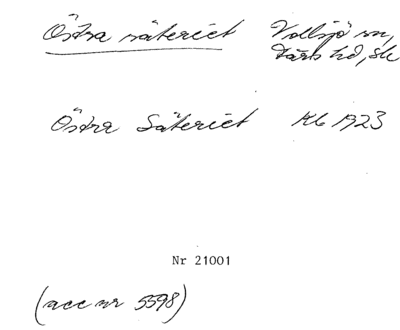 Östra säteriet Vollsjö sn,
Färs hd, Sk
Östra Säteriet Kb 1923
Nr 21001
(acc nr 5598)